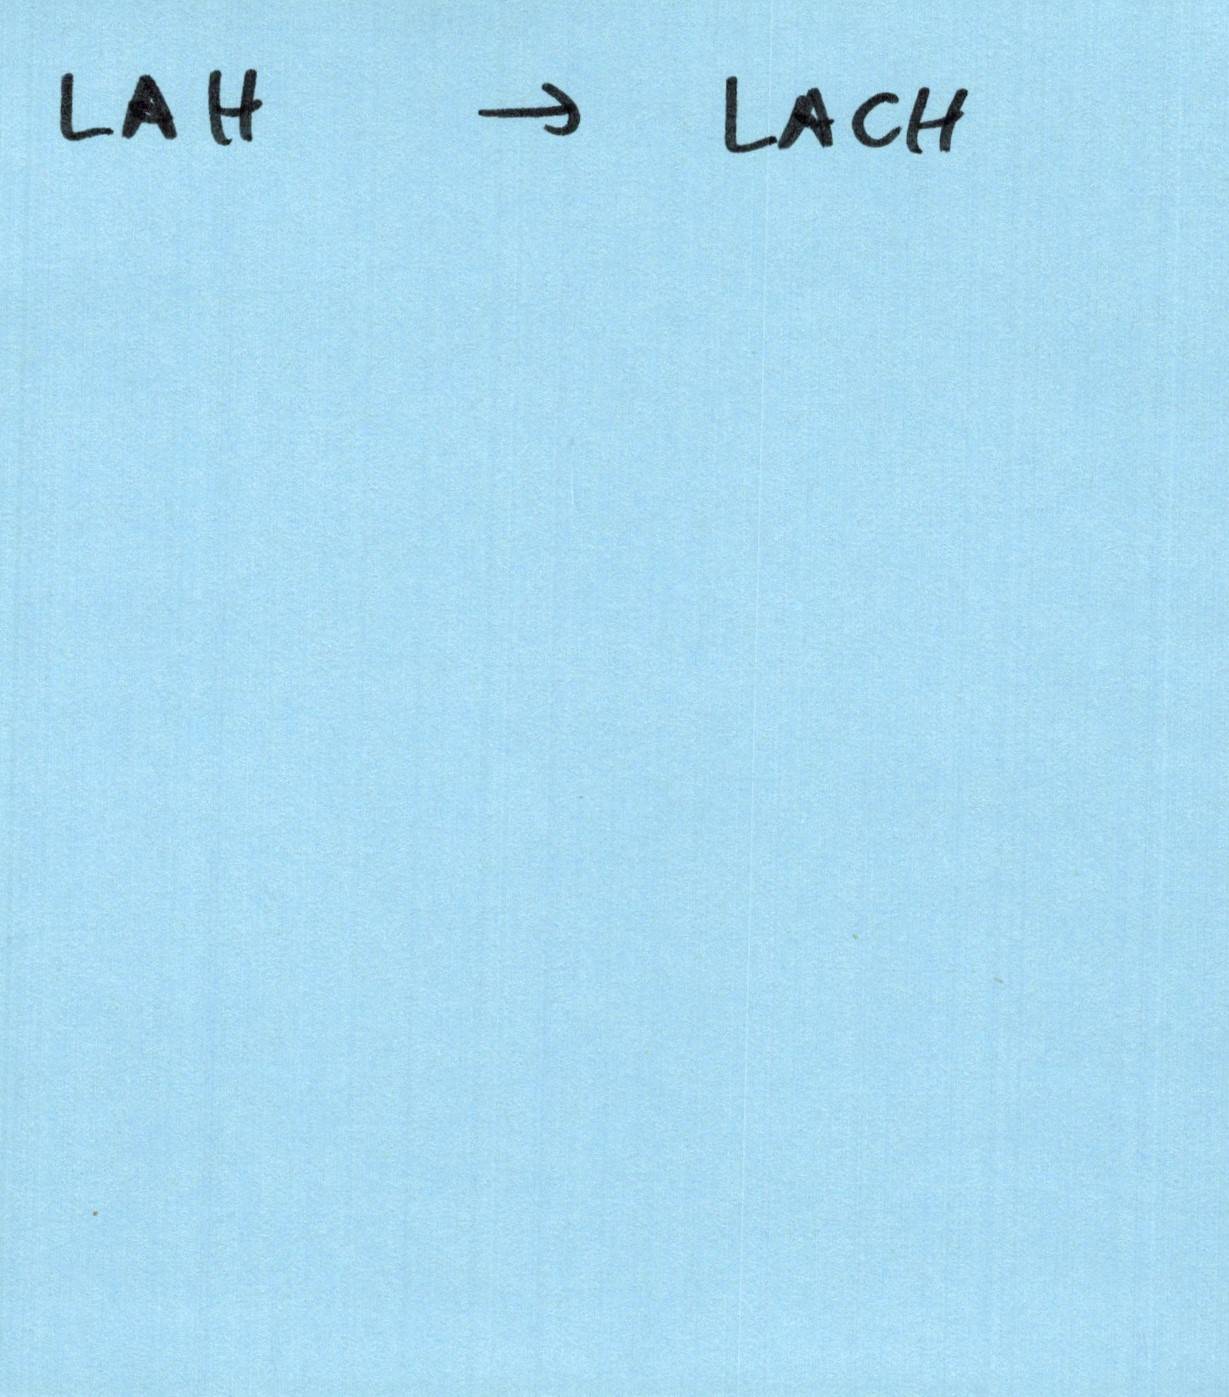 LAH → LACH